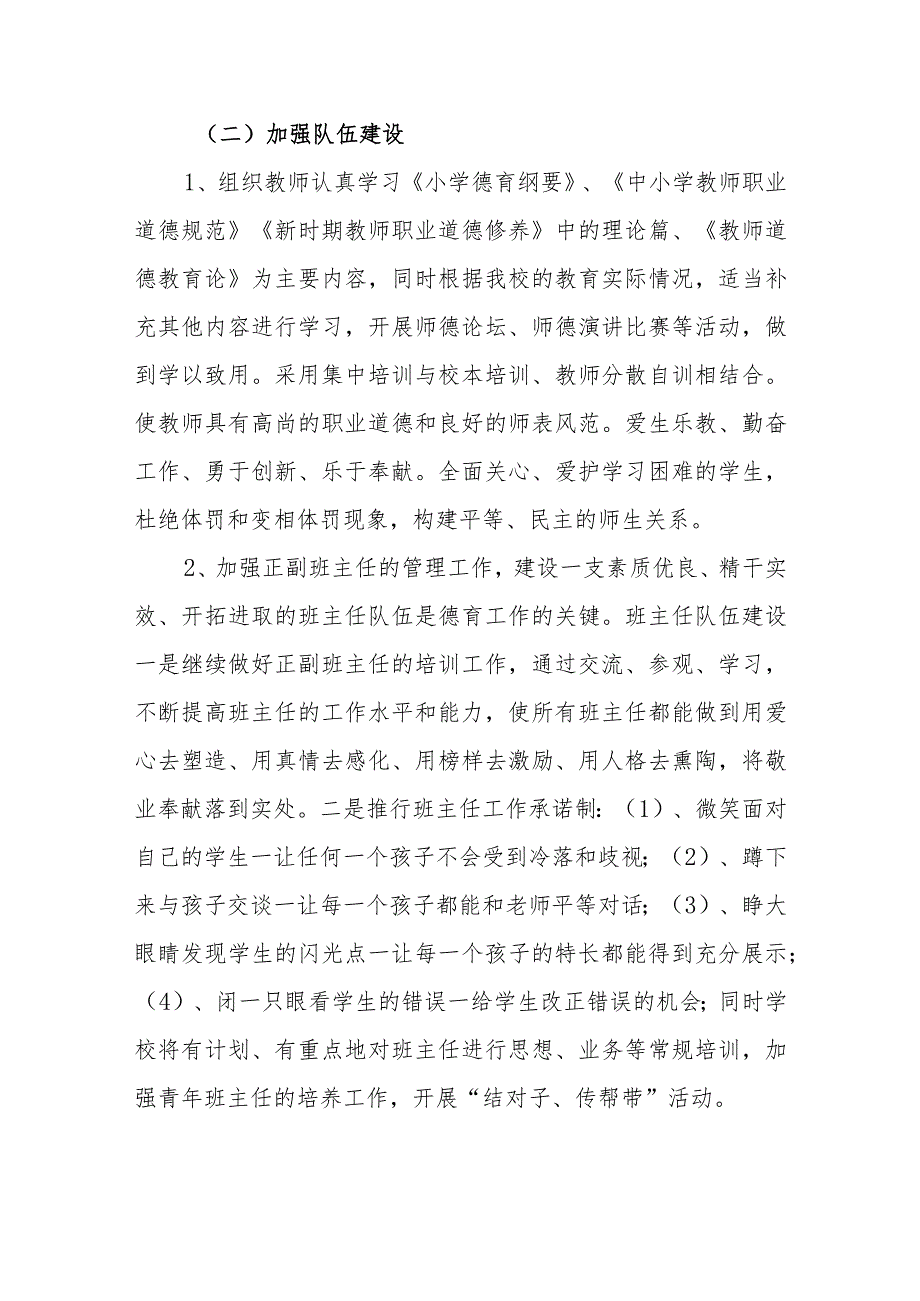 （二）加强队伍建设
1、组织教师认真学习《小学德育纲要》、《中小学教师职业
道德规范》《新时期教师职业道德修养》中的理论篇、《教师道
德教育论》为主要内容，同时根据我校的教育实际情况，适当补
充其他内容进行学习，开展师德论坛、师德演讲比赛等活动，做
到学以致用。采用集中培训与校本培训、教师分散自训相结合。
使教师具有高尚的职业道德和良好的师表风范。爱生乐教、勤奋
工作、勇于创新、乐于奉献。全面关心、爱护学习困难的学生，
杜绝体罚和变相体罚现象，构建平等、民主的师生关系。
2、加强正副班主任的管理工作，建设一支素质优良、精干实
效、开拓进取的班主任队伍是德育工作的关键。班主任队伍建设
一是继续做好正副班主任的培训工作，通过交流、参观、学习，
不断提高班主任的工作水平和能力，使所有班主任都能做到用爱
心去塑造、用真情去感化、用榜样去激励、用人格去熏陶，将敬
业奉献落到实处。二是推行班主任工作承诺制：（1）、微笑面对
自己的学生一让任何一个孩子不会受到冷落和歧视；（2）、蹲下
来与孩子交谈一让每一个孩子都能和老师平等对话；（3）、睁大
眼睛发现学生的闪光点一让每一个孩子的特长都能得到充分展示；
（4）、闭一只眼看学生的错误一给学生改正错误的机会；同时学
校将有计划、有重点地对班主任进行思想、业务等常规培训，加
强青年班主任的培养工作，开展“结对子、传帮带”活动。